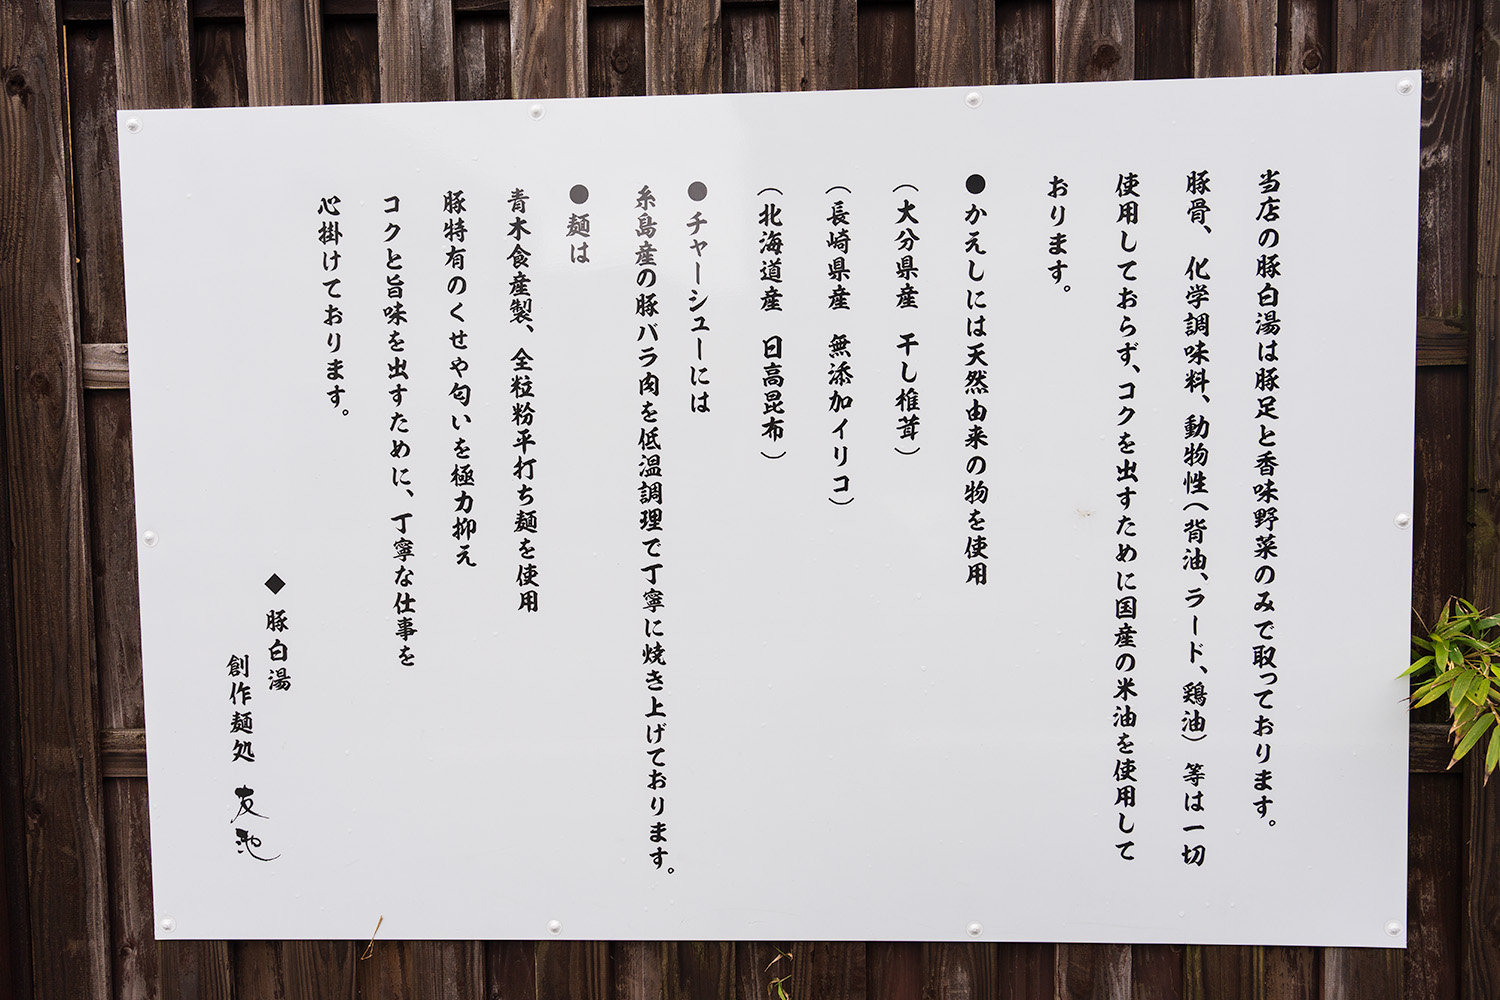 当店の豚白湯は豚足と香味野菜のみで取っております。
豚骨、化学調味料、動物性(背油、ラード、鶏油)等は一切
使用しておらず、コクを出すために国産の米油を使用して
おります。
●かえしには天然由来の物を使用
(大分県産 干し椎茸)
(長崎県産 無添加イリコ)
(北海道産 日高昆布)
●チャーシューには
糸島産の豚バラ肉を低温調理で丁寧に焼き上げております。
●麺は
青木食産製、全粒粉平打ち麺を使用
豚特有のくせや匂いを極力抑え
コクと旨味を出すために、丁寧な仕事を
心掛けております。
◆豚白湯
創作麺処 友池